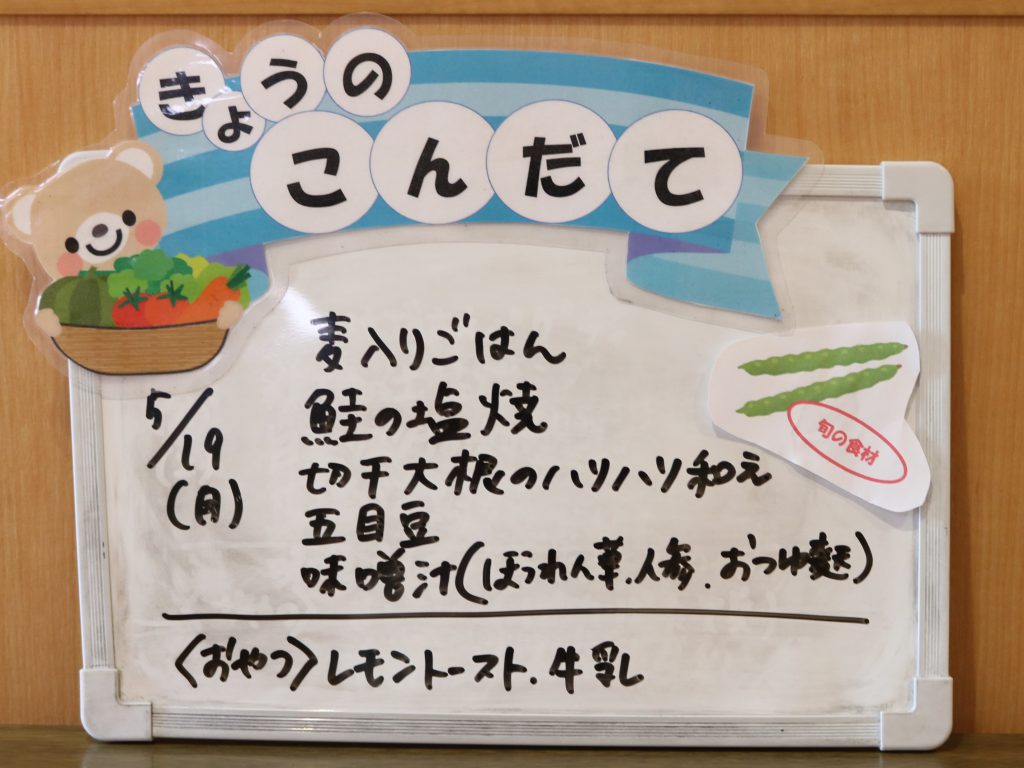 きょうの
こんだて
旬の食材
5/19
(月)
麦入りごはん
鮭の塩焼
切干大根のハリハリ和え
五目豆
味噌汁(ほうれん草、人参、おつゆ麩)
〈おやつ〉レモントースト、牛乳